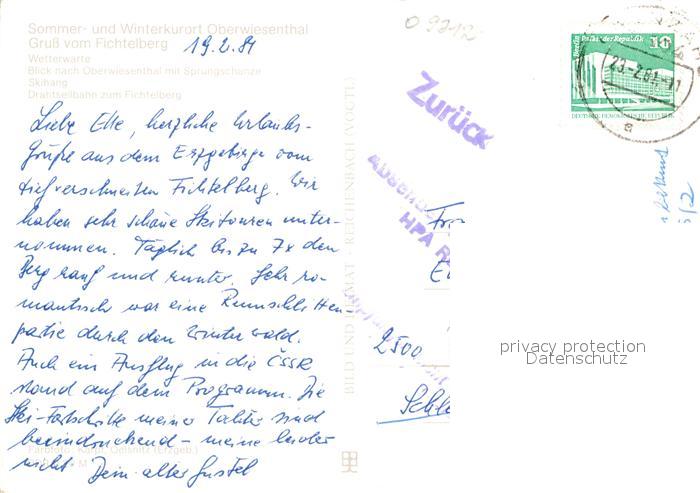 Sommer- und Winterkurort Oberwiesenthal
Gruß vom Fichtelberg
19.2.81
Wetterwarte
Blick nach Oberwiesenthal mit Sprungschanze
Skihang
Drahtseilbahn zum Fichtelberg
Liebe Elke, herzliche Urlaubs-
Grüße aus dem Erzgebirge vom
tief verschneiten Fichtelberg. Wir
haben sehr schöne Skitouren unter-
nommen. Täglich bis zu 7x den
Berg rauf und runter. Sehr ro-
mantisch war eine Rennschlitten-
partie durch den Winterwald.
Auch ein Ausflug in die ČSSR
stand auf dem Programm. Die
Ski-Fortschritte meiner Tochter sind
beeindruckend - meine leider
nicht. Dein alter Gustel
Farbfoto: Karpf, Oelsnitz (Erzgeb.)
BILD UND HEIMAT REICHENBACH (VOGTL)
Zurück
HPA
2500
Berlin Palast der Republik
10
DEUTSCHE DEMOKRATISCHE REPUBLIK
23.-2.81.-11
a
privacy protection
Datenschutz